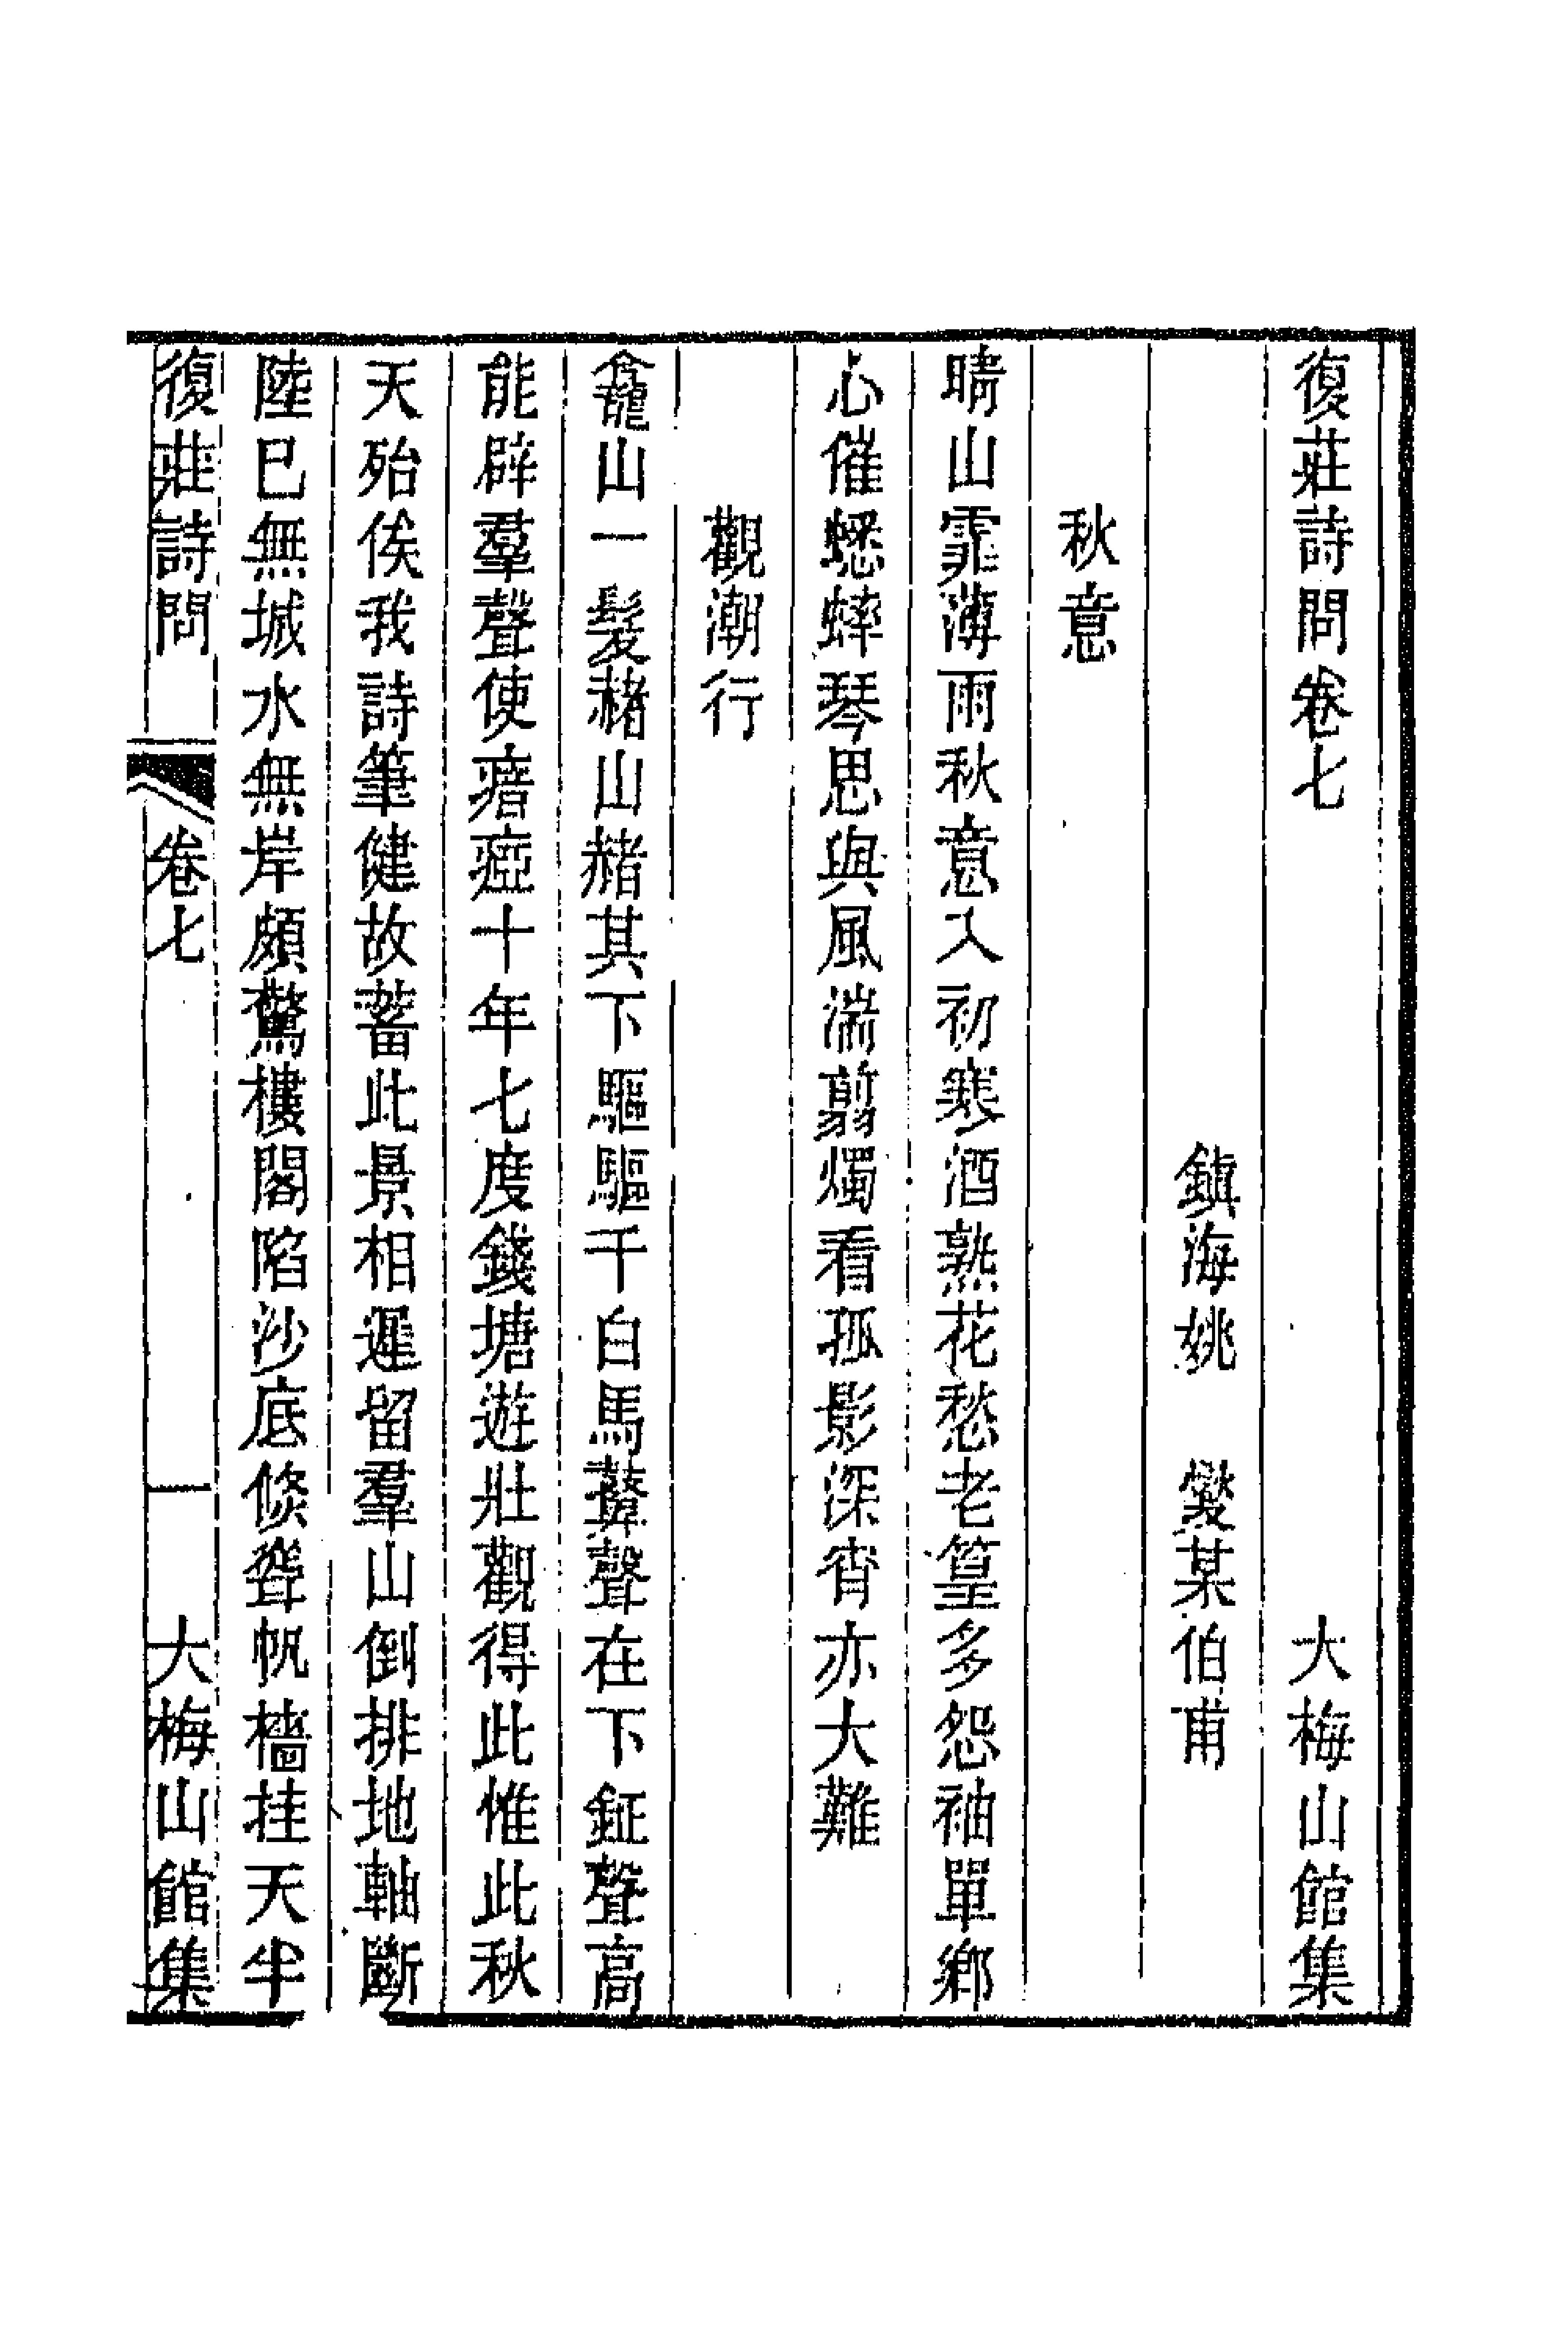 復莊詩問卷七　　　　　　　　　　大梅山館集
鎮海姚　燮某伯甫
秋意
晴山霏薄雨秋意入初寒酒熟花愁老篁多怨袖單鄉
心催蟋蟀琴思與風湍翦燭看孤影深宵亦大難
觀潮行
龕山一髮赭山赭其下驅驅千白馬鼛聲在下鉦聲高
能辟羣聲使瘖瘂十年七度錢塘遊壯觀得此惟此秋
天殆俟我詩筆健故蓄此景相遲留羣山倒排地軸斷
陸已無城水無岸頗驚樓閣陷沙底倐聳帆檣挂天半
復莊詩問　卷七　　　　一　大梅山館集